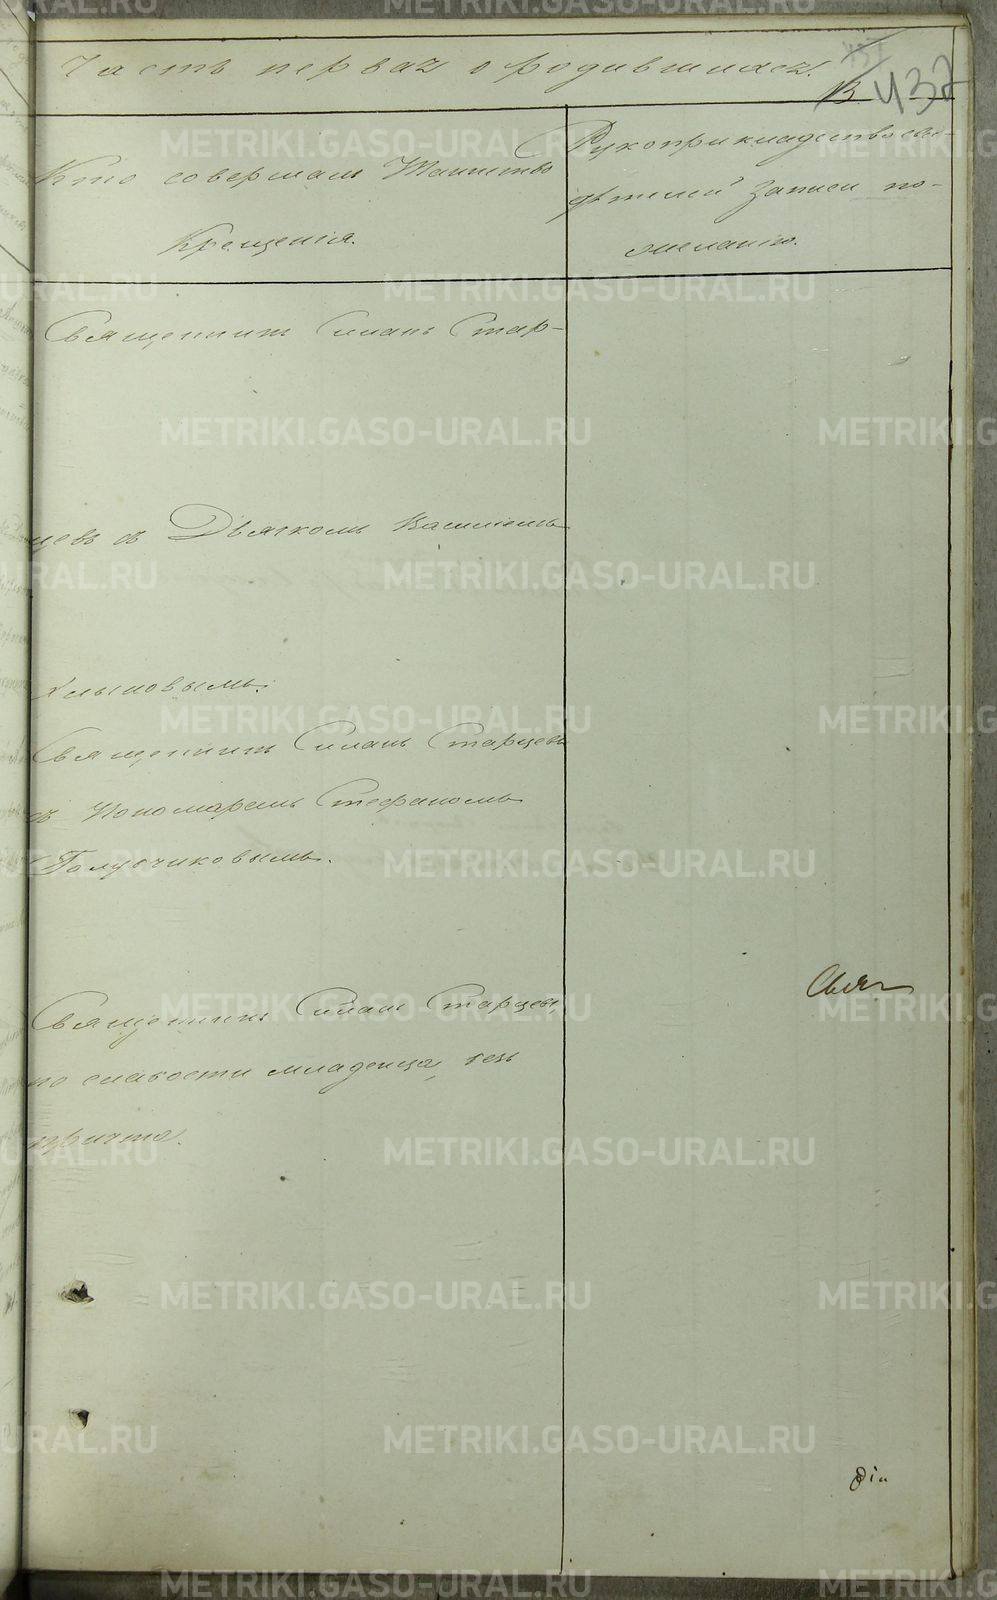 Часть первая о родившихся.
13
432
Кто совершалъ Таинство
Крещенія.
Рукоприкладство сви-
дѣтелей записи по
желанію.
Священникъ Симонъ Стар-
цевъ съ Дьячкомъ Василіемъ
Хлыновымъ.
Священникъ Симонъ Старцевъ
съ Пономаремъ Стефаномъ
Голубчиковымъ.
Священникъ Симонъ Старцевъ,
по слабости младенца, безъ
причта.
Свящ
METRIKI.GASO-URAL.RU